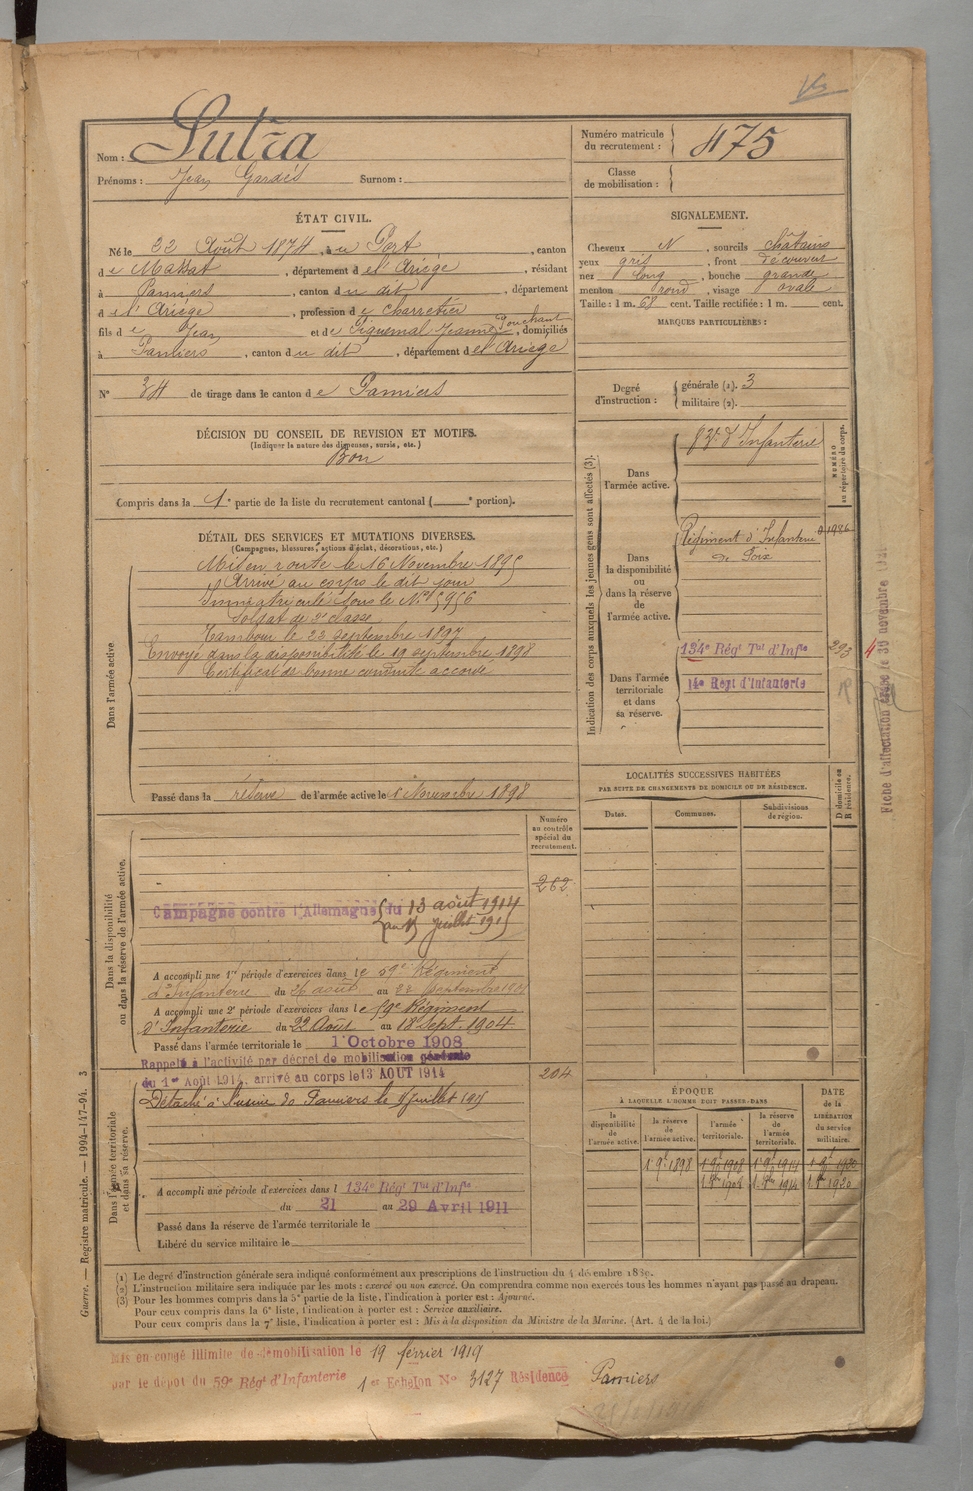 Nom : Sutra
Prénoms : Jean Gardés Surnom :
Numéro matricule du recrutement : 475
Classe de mobilisation :
ÉTAT CIVIL.
Né le 22 Août 1874, à u Port, canton
d e Massat, département d e l'Ariège, résidant
à Pamiers, canton d u dit, département
d e l'Ariège, profession d e charretier
fils d e Jean et d e Piquemal Jeanne Pouchant, domiciliés
à Pamiers, canton d u dit, département d e l'Ariège
N° 34 de tirage dans le canton d e Pamiers
SIGNALEMENT.
Cheveux N, sourcils châtains
yeux gris, front découvert
nez long, bouche grande
menton rond, visage ovale
Taille : 1 m. 68 cent. Taille rectifiée : 1 m. cent.
MARQUES PARTICULIÈRES :
Degré d'instruction : générale (1). 3
militaire (2).
DÉCISION DU CONSEIL DE REVISION ET MOTIFS.
(Indiquer la nature des dispenses, sursis, etc.)
Bon
Compris dans la 1e partie de la liste du recrutement cantonal ( e portion).
DÉTAIL DES SERVICES ET MUTATIONS DIVERSES.
(Campagnes, blessures, actions d'éclat, décorations, etc.)
Dans l'armée active.
Mis en route le 16 Novembre 1895
Arrivé au corps le dit jour
Immatriculé sous le N°
Soldat de 2e classe
Tambour le 22 septembre 1897
Envoyé dans la disponibilité le 19 septembre 1898
Certificat de bonne conduite accordé
Passé dans la réserve de l'armée active le 1 Novembre 1898
Indication des corps auxquels les jeunes gens sont affectés (3).
NUMÉRO au répertoire du corps.
Dans l'armée active.
d'Infanterie
Dans la disponibilité ou dans la réserve de l'armée active.
Régiment d'Infanterie 1986
de Foix
Dans l'armée territoriale et dans sa réserve.
134e Régt Tal d'Infie 293
14e Regt d'Infanterie
LOCALITÉS SUCCESSIVES HABITÉES
PAR SUITE DE CHANGEMENTS DE DOMICILE OU DE RÉSIDENCE.
Dates. Communes. Subdivisions de région. D domicile ou R résidence.
Numéro au contrôle spécial du recrutement.
262
Dans la disponibilité ou dans la réserve de l'armée active.
Campagne contre l'Allemagne du 13 août 1914
au 15 Juillet 1915
A accompli une 1re période d'exercices dans le 59e Régiment
d'Infanterie du 26 août au 22 Septembre 1901
A accompli une 2e période d'exercices dans le 59e Régiment
d'Infanterie du 22 Août au 18 Sept. 1904
Passé dans l'armée territoriale le 1 Octobre 1908
Rappelé à l'activité par décret de mobilisation générale
du 1er Août 1914, arrivé au corps le 13 AOUT 1914
204
Dans l'armée territoriale et dans sa réserve.
Détaché à l'usine de Pamiers le Juillet 1915
A accompli une période d'exercices dans l 134e Régt Tal d'Infie
du 21 au 29 Avril 1911
Passé dans la réserve de l'armée territoriale le
Libéré du service militaire le
ÉPOQUE
À LAQUELLE L'HOMME DOIT PASSER DANS
DATE de la LIBÉRATION du service militaire.
la disponibilité de l'armée active. la réserve de l'armée active. l'armée territoriale. la réserve de l'armée territoriale.
(1) Le degré d'instruction générale sera indiqué conformément aux prescriptions de l'instruction du 4 décembre 1889.
(2) L'instruction militaire sera indiquée par les mots : exercé ou non exercé. On comprendra comme non exercés tous les hommes n'ayant pas passé au drapeau.
(3) Pour les hommes compris dans la 5e partie de la liste, l'indication à porter est : Ajourné.
Pour ceux compris dans la 6e liste, l'indication à porter est : Service auxiliaire.
Pour ceux compris dans la 7e liste, l'indication à porter est : Mis à la disposition du Ministre de la Marine. (Art. 4 de la loi.)
Mis en congé illimité de démobilisation le 19 février 1919
par le dépôt du 59e Régt d'Infanterie 1er Echelon N° 3127 Résidence Pamiers
Guerre. — Registre matricule. — 1994-147-94. 3